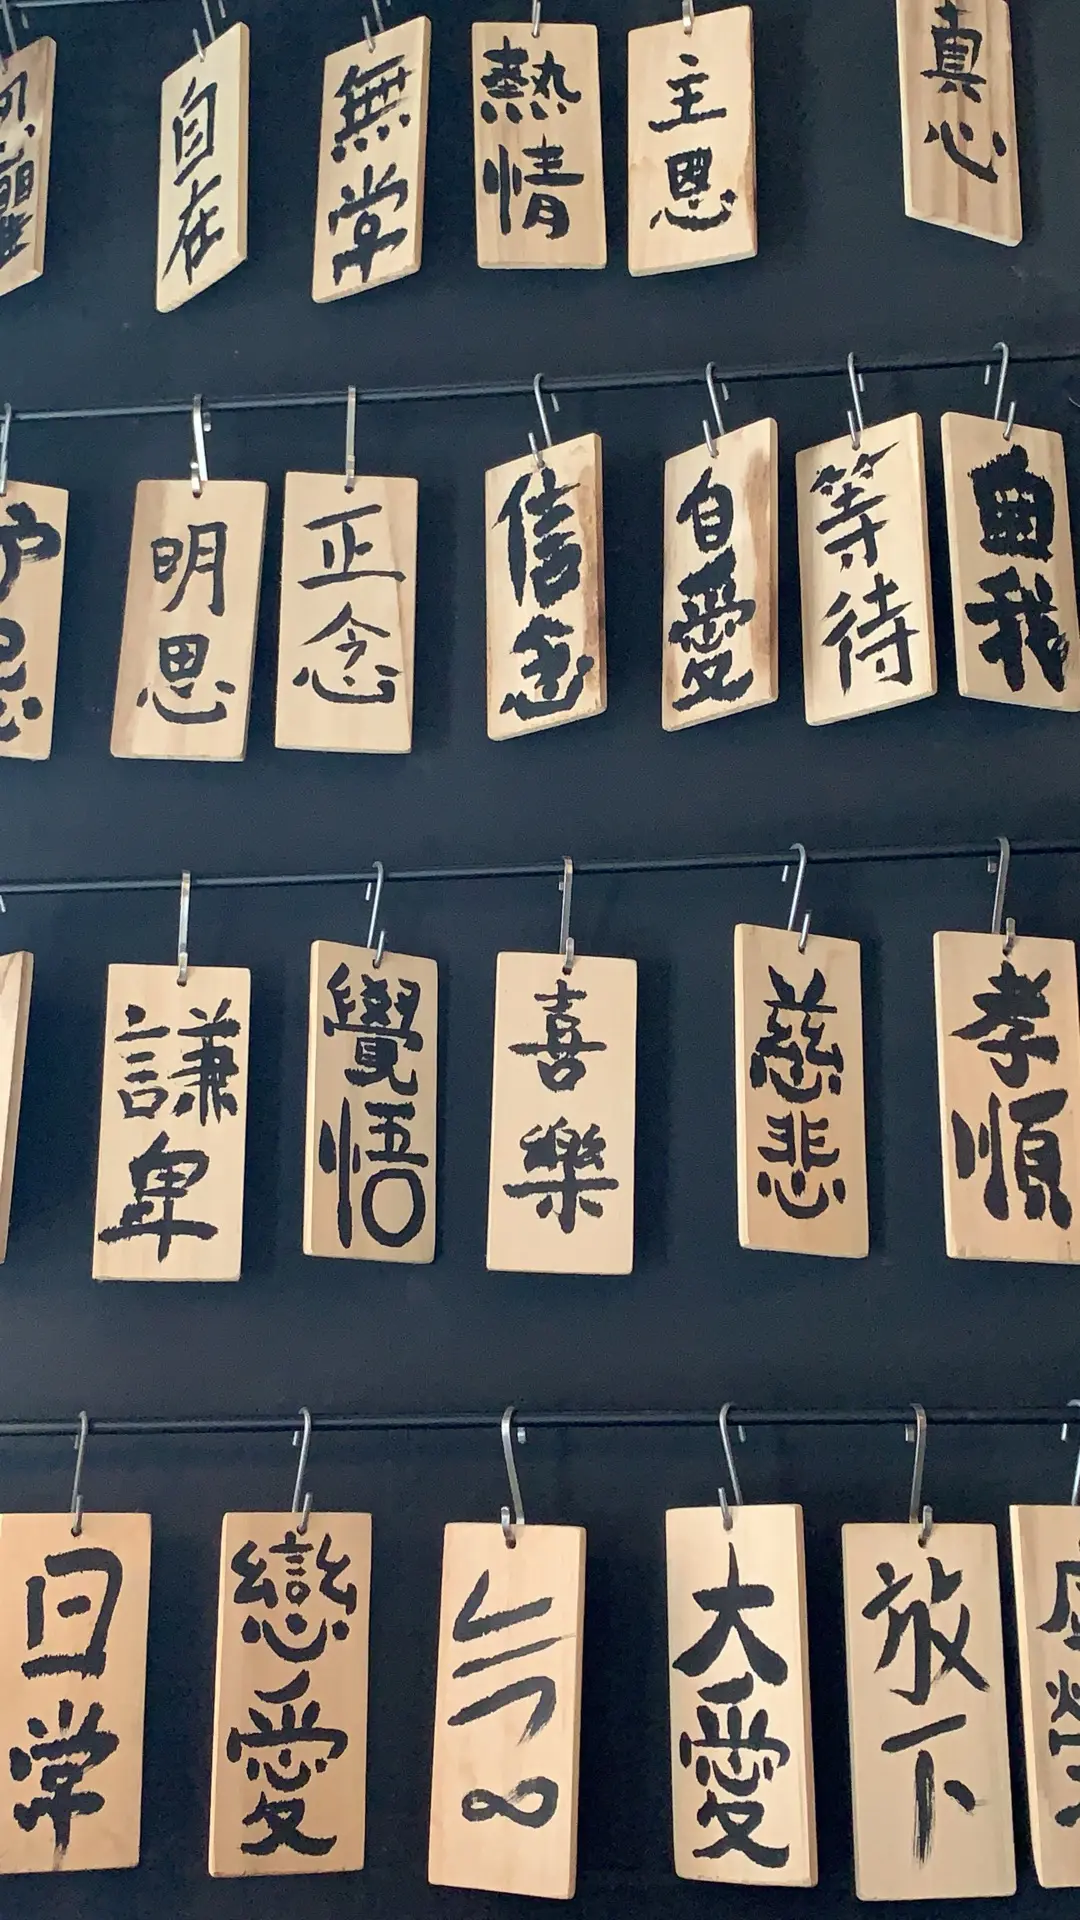 自在
無常
熱情
主恩
真心
明思
正念
信念
自愛
等待
自我
謙卑
覺悟
喜樂
慈悲
孝順
日常
戀愛
大愛
放下